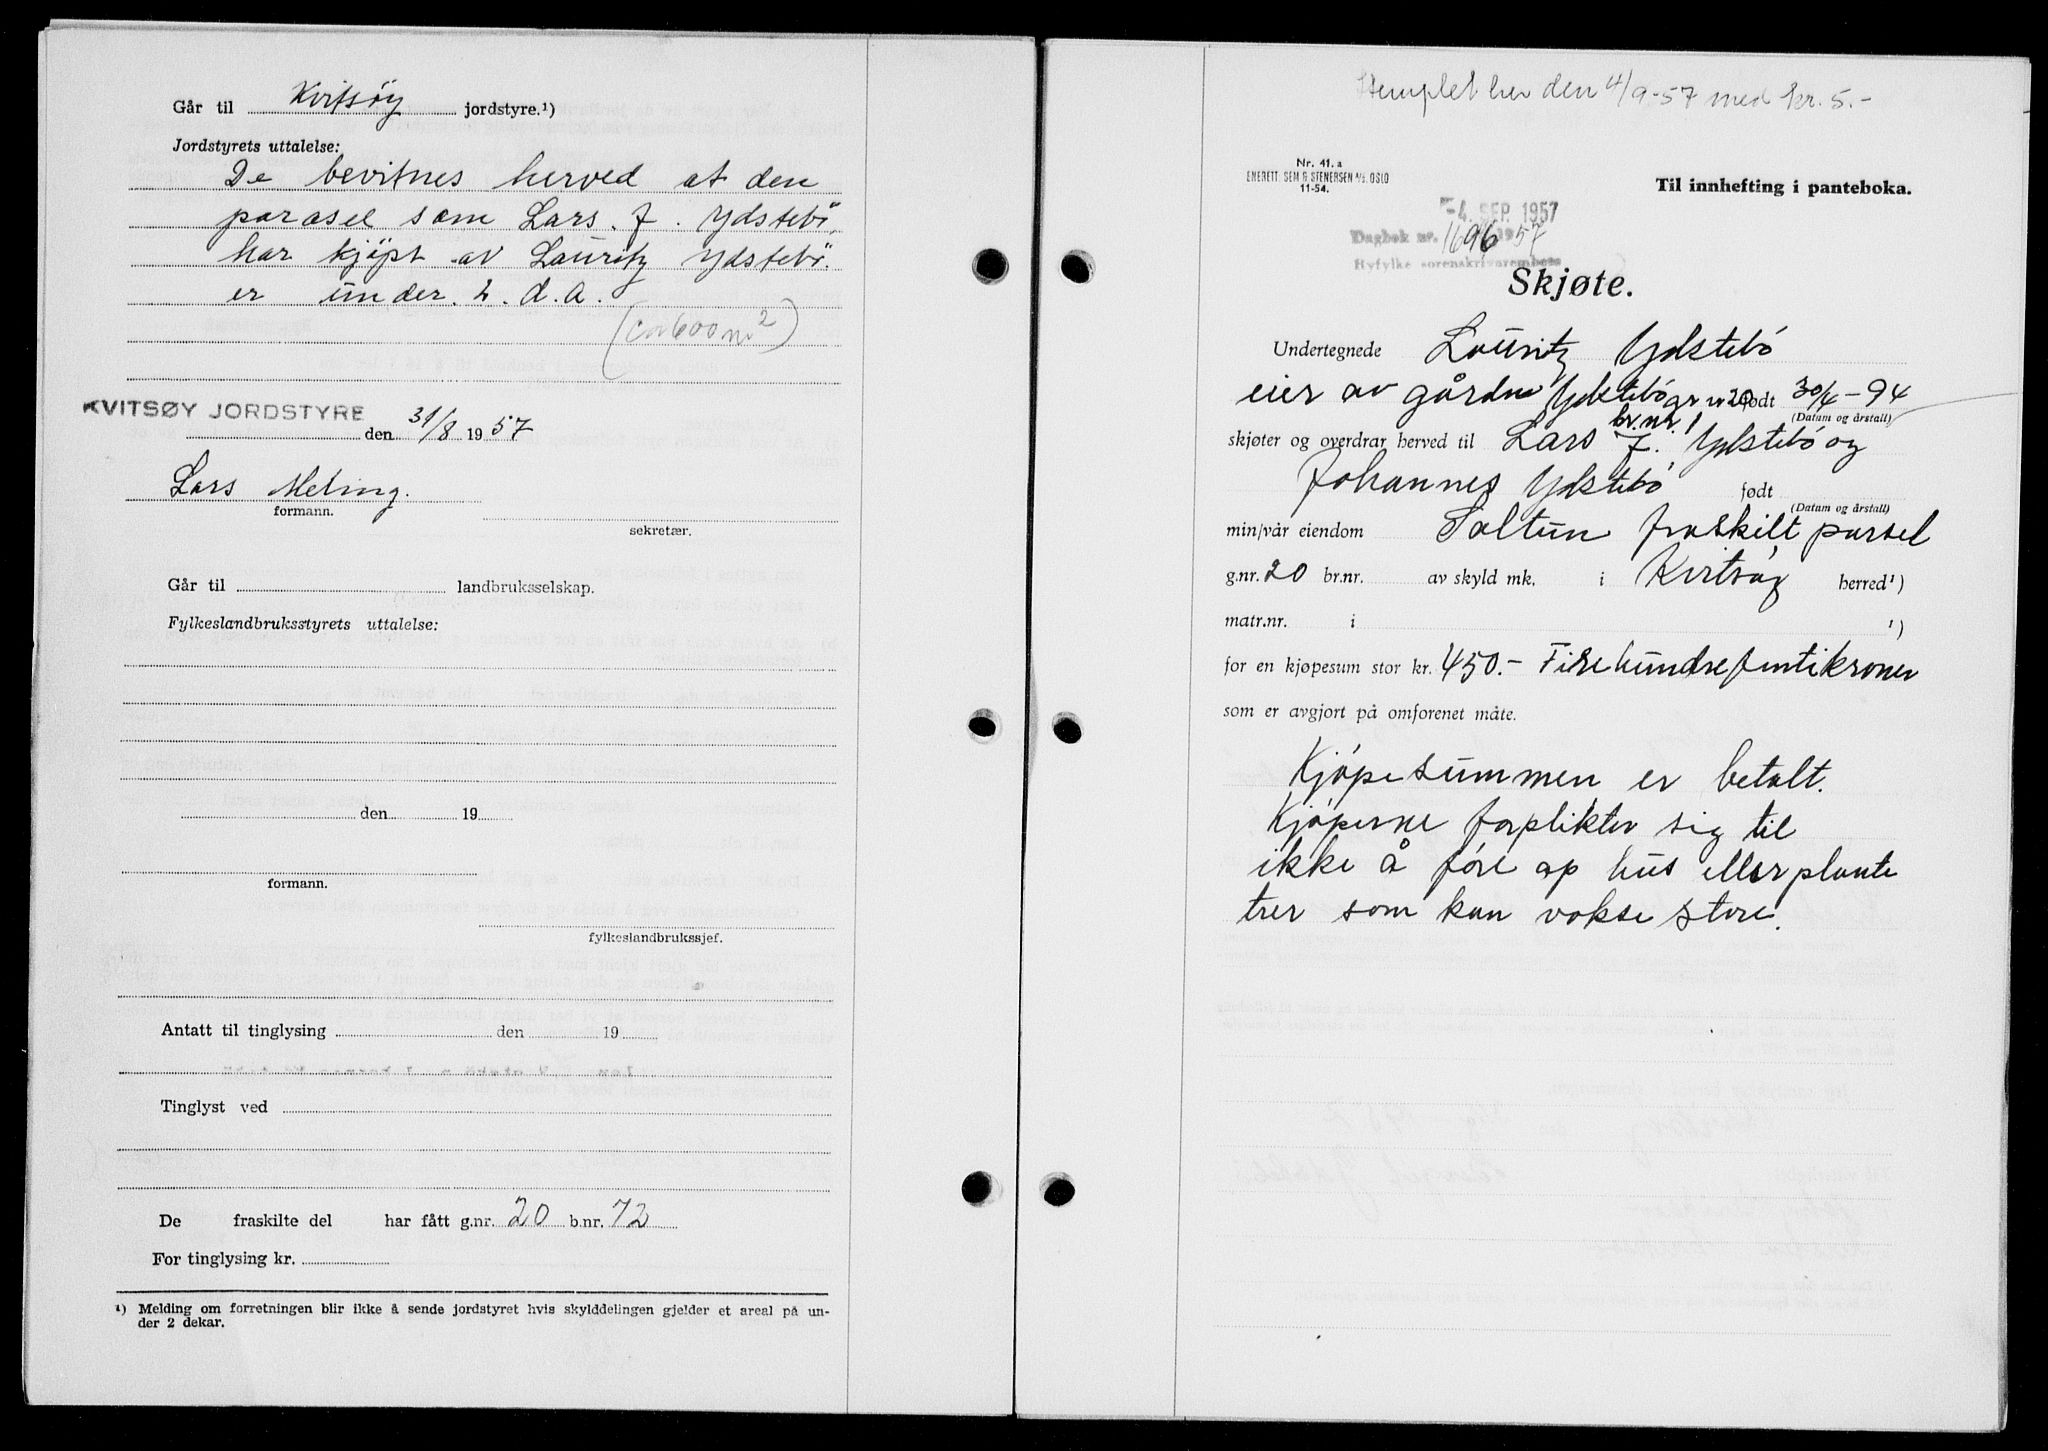 Går til Kvitsøy jordstyre.¹)
Jordstyrets uttalelse:
De bevitnes herved at den
parasel som Lars. J. Ydstebö,
har kjöpt av Lauritz Ydstebö.
er under. 2. d.a.
(ca 600 m²)
KVITSØY JORDSTYRE
den 31/8 1957
Lars Meling.
formann.
sekretær.
Går til landbruksselskap.
Fylkeslandbruksstyrets uttalelse:
den 19
formann.
fylkeslandbrukssjef.
Antatt til tinglysing den 19
Tinglyst ved
De fraskilte del har fått g.nr. 20 b.nr. 72
For tinglysing kr.
¹) Melding om forretningen blir ikke å sende jordstyret hvis skylddelingen gjelder et areal på un-
der 2 dekar.
Stemplet her den 4/9-57 med kr. 5.-
Nr. 41. a
ENERETT SEM & STENERSEN A/S. OSLO
11-54.
Til innhefting i panteboka.
-4. SEP. 1957
Dagbok nr. 1696 1957
Ryfylke sorenskrivarembete
Skjøte.
Undertegnede Lauritz Ydstebó
eier av gården Ydstebó gr nr 20 født 30/4-94
br.nr. 1 (Datum og årstall)
skjøter og overdrar herved til Lars J. Ydstebó og
Johannes Ydstebó født
(Datum og årstall)
min/vår eiendom Saltun fraskilt parsel
g.nr. 20 br.nr. av skyld mk. i Kvitsóy herred¹)
matr.nr. i ¹)
for en kjøpesum stor kr. 450.- Firehundrefemtikroner
som er avgjort på omforenet måte.
Kjópesummen er betalt.
Kjóperne forplikter sig til
ikke å fóre op hus eller plante
trer som kan vokse store.